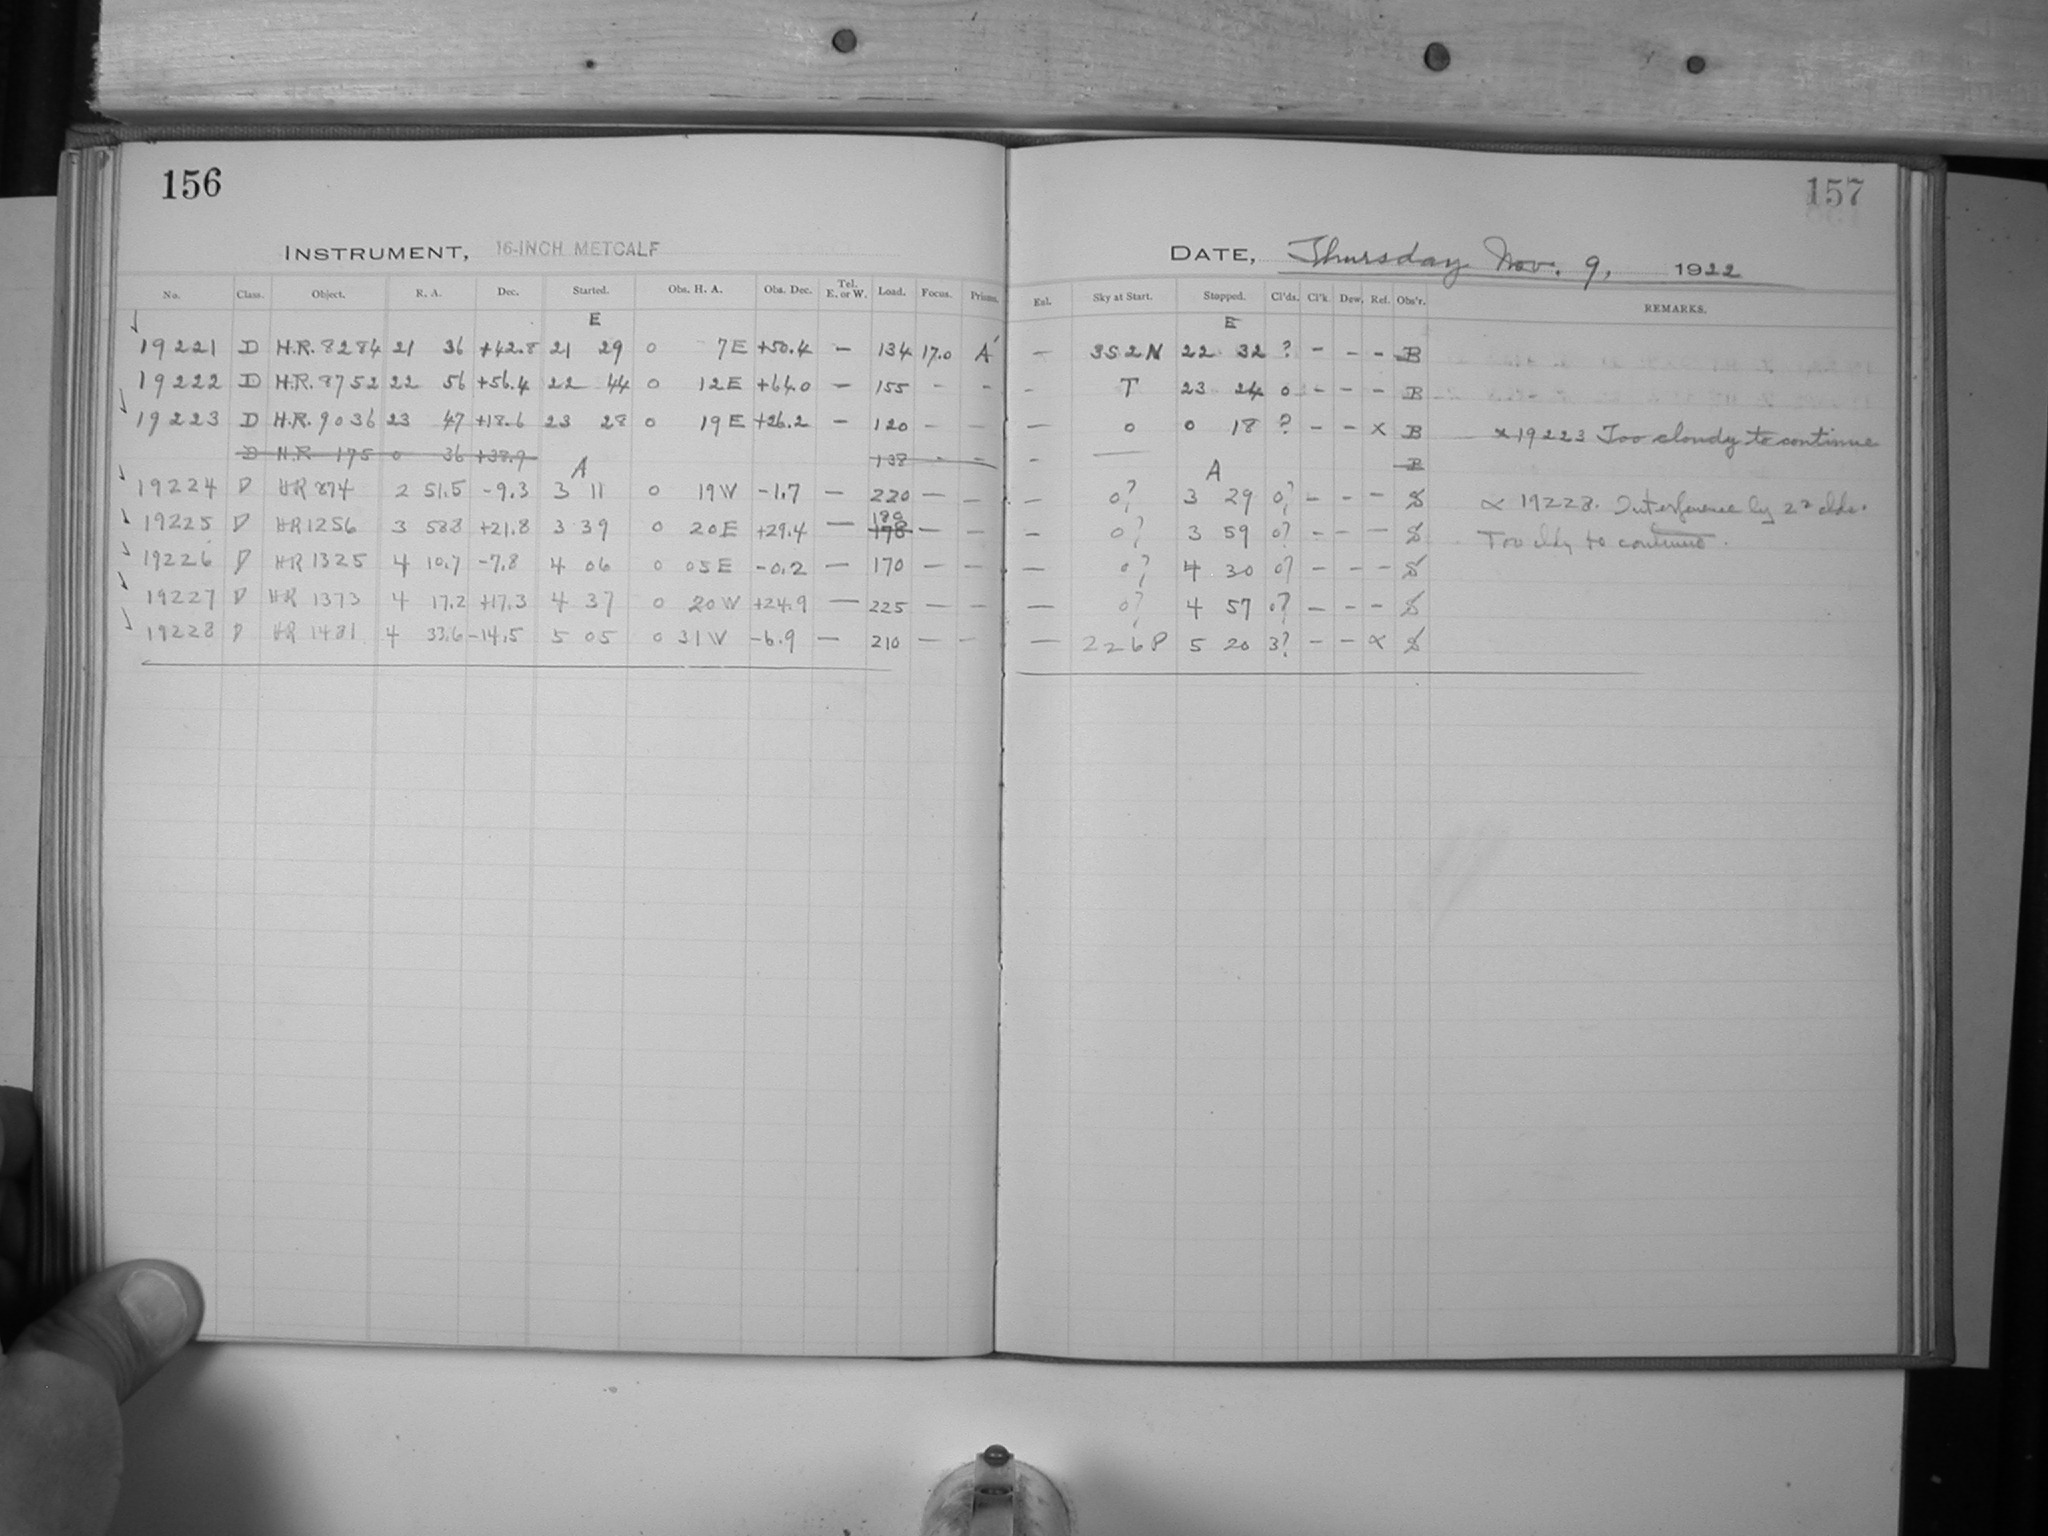 156
157
INSTRUMENT, 16-INCH METCALF
DATE, Thursday Nov. 9, 1922
No. Class. Object. R. A. Dec. Started. Obs. H. A. Obs. Dec. Tel. E. or W. Load. Focus. Prisms. Eul. Sky at Start. Stopped. Cl'ds. Cl'k. Dew. Ref. Obs'r. REMARKS.
E E
19221 D H.R. 8284 21 36 +42.8 21 29 0 7E +50.4 — 134 17.0 A' — 3S2N 22 32 ? - - - B
19222 D H.R. 8752 22 56 +56.4 22 44 0 12E +64.0 — 155 - - - T 23 24 0 - - - B
19223 D H.R. 9036 23 47 +18.6 23 28 0 19E +26.2 — 120 - - — 0 0 18 ? - - x B x 19223 Too cloudy to continue
D H.R 175 0 36 +38.9 138 - - - — B
A A
19224 D HR 874 2 51.5 -9.3 3 11 0 19W -1.7 — 220 — — — 0? 3 29 0? - - - S α 19228. Interference by
19225 D HR 1256 3 58.8 +21.8 3 39 0 20E +29.4 — 180 178 — — - 0? 3 59 0? - - — S Too cldy to continue.
19226 D HR 1325 4 10.7 -7.8 4 06 0 05E -0.2 — 170 — — — 0? 4 30 0? - - - S
19227 D HR 1373 4 17.2 +17.3 4 37 0 20W +24.9 — 225 — — — 0? 4 57 0? - - - S
19228 D HR 1481 4 33.6 -14.5 5 05 0 31W -6.9 — 210 — — — 226P 5 20 3? - - α S